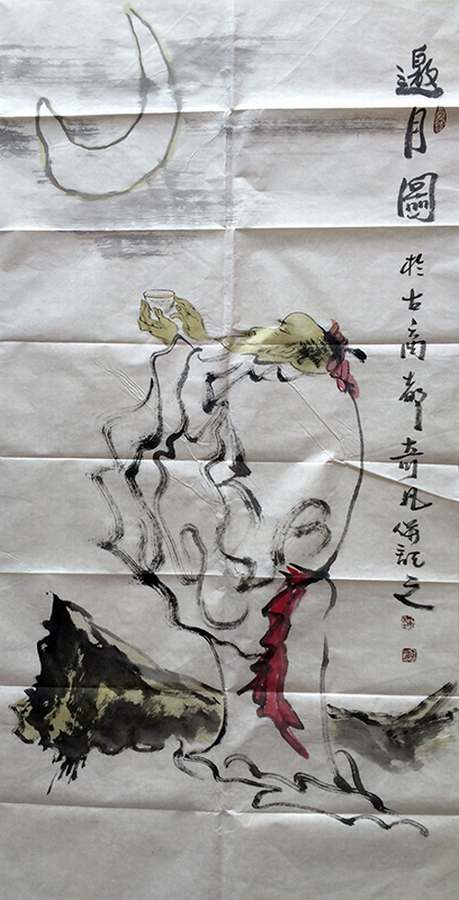 邀月圖
於古商都奇凡併記之